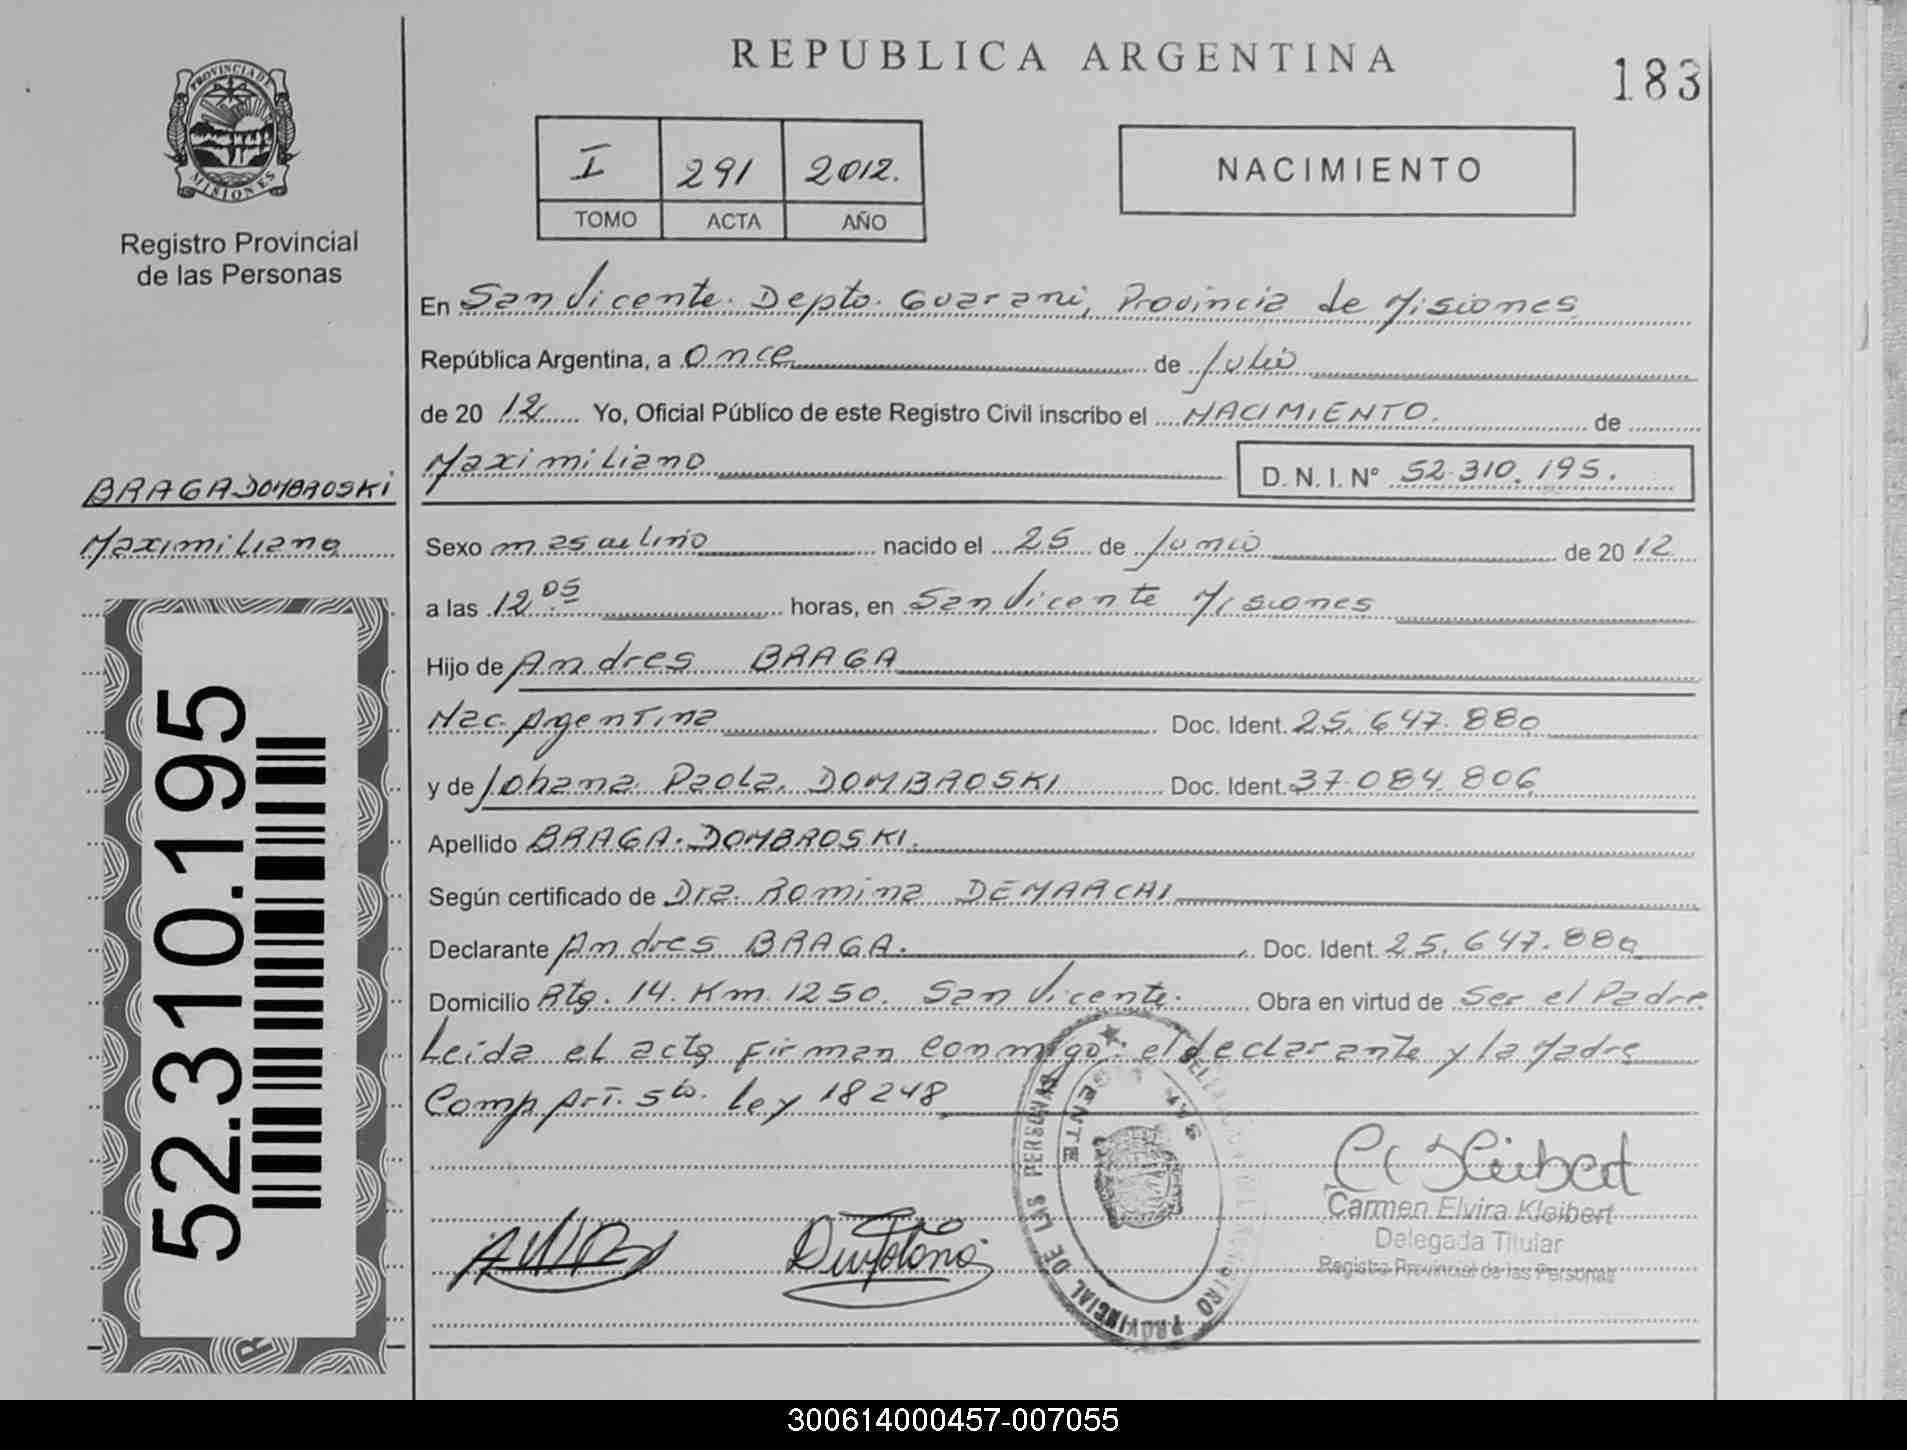 REPUBLICA ARGENTINA
183
PROVINCIA DE
MISIONES
Registro Provincial
de las Personas
I 291 2012.
TOMO ACTA AÑO
NACIMIENTO
En San Vicente. Depto. Guarani, Provincia de Misiones
República Argentina, a once de Julio
de 20 12 Yo, Oficial Público de este Registro Civil inscribo el NACIMIENTO. de
Maximiliano D. N. I. Nº 52.310.195.
BRAGA DOMBROSKI
Maximiliano
Sexo masculino nacido el 25 de Junio de 20 12
a las 12 05 horas, en San Vicente Misiones
Hijo de Andres BRAGA
Nac. Argentina Doc. Ident. 25.647.880
y de Johana Paola DOMBROSKI Doc. Ident. 37.084.806
Apellido BRAGA. DOMBROSKI.
Según certificado de Dra. Romina DEMARCHI
Declarante Andres BRAGA. Doc. Ident. 25.647.880
Domicilio Rta. 14. Km. 1250. San Vicente. Obra en virtud de Ser el Padre
Leida el acta firman conmigo. el declarante y la Madre
Comp. Art. 5to. Ley 18248
52.310.195
Carmen Elvira Kleibert
Delegada Titular
Registro Provincial de las Personas
PROVINCIAL DE LAS PERSONAS
300614000457-007055